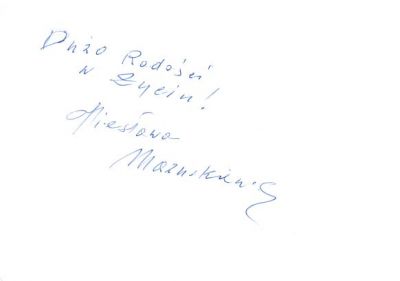 Dużo Radości
w Życiu!
Wiesława
Mazurkiewicz